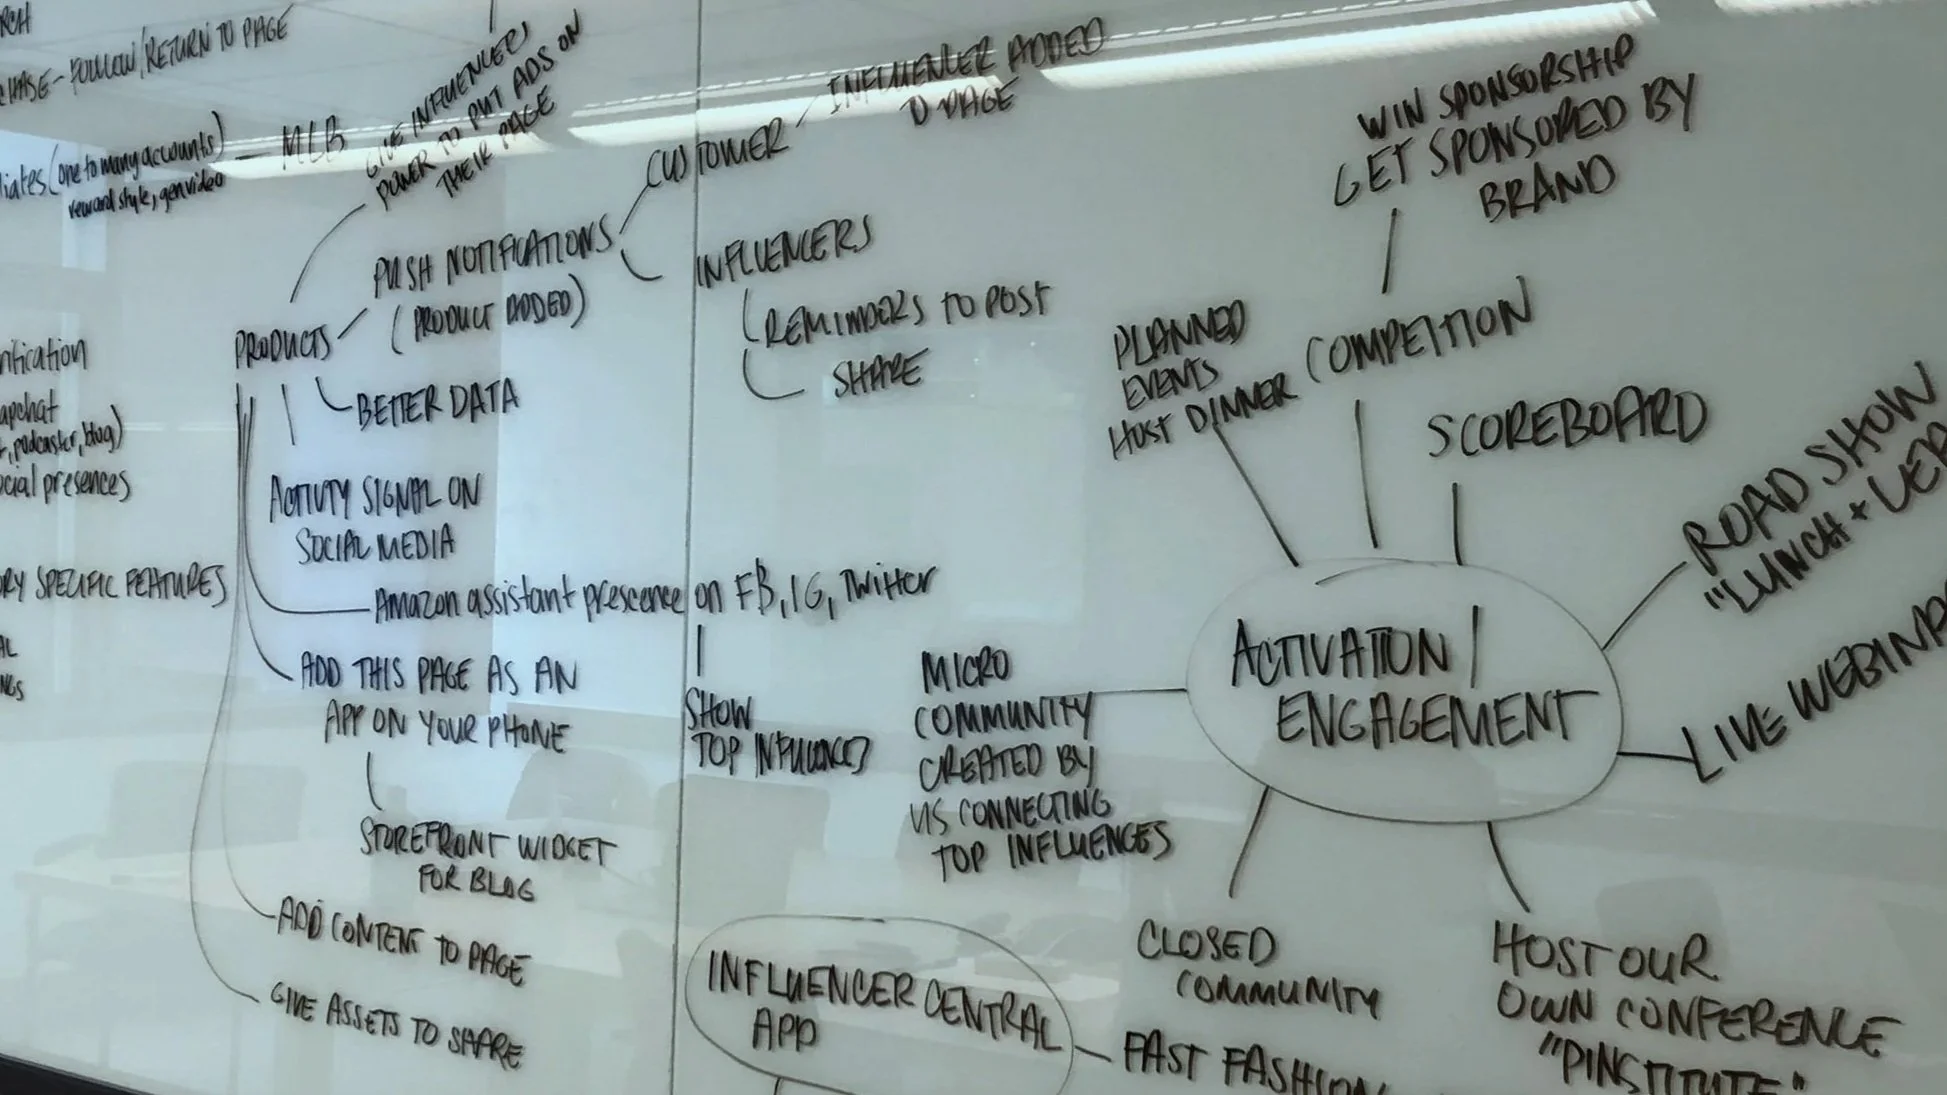 FOLLOW/RETURN TO PAGE
(one to many accounts)
reward style, genvideo
MLB
GIVE INFLUENCERS
POWER TO PUT ADS ON
THEIR PAGE
PRODUCTS
PUSH NOTIFICATIONS
(PRODUCT ADDED)
CUSTOMER
INFLUENCER ADDED
TO PAGE
INFLUENCERS
REMINDERS TO POST
SHARE
BETTER DATA
ACTIVITY SIGNAL ON
SOCIAL MEDIA
Amazon assistant prescence on FB, IG, Twitter
SHOW
TOP INFLUENCES
ADD THIS PAGE AS AN
APP ON YOUR PHONE
STOREFRONT WIDGET
FOR BLOG
ADD CONTENT TO PAGE
GIVE ASSETS TO SHARE
podcaster, blog)
presences
SPECIFIC FEATURES
WIN SPONSORSHIP
GET SPONSORED BY
BRAND
PLANNED
EVENTS
HOST DINNER
COMPETITION
SCOREBOARD
ROAD SHOW
"LUNCH +
LIVE
ACTIVATION/
ENGAGEMENT
MICRO
COMMUNITY
CREATED BY
US CONNECTING
TOP INFLUENCES
CLOSED
COMMUNITY
HOST OUR
OWN CONFERENCE
"PINSTITUTE"
INFLUENCER CENTRAL
APP
FAST FASHION